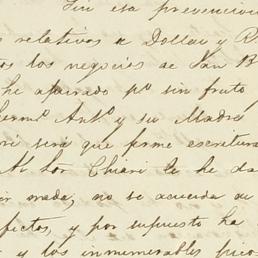 Sin esa prevencion
relativos a Dollar y R
os los negocios de San B
he apurado pr sin fruto
herm.o Ant.o y su Madre
ri será que forme escritura
Al Sor Chiari le he da
ir nada, no se acuerda de
efectos, y por supuesto ha
y los innumerables pico